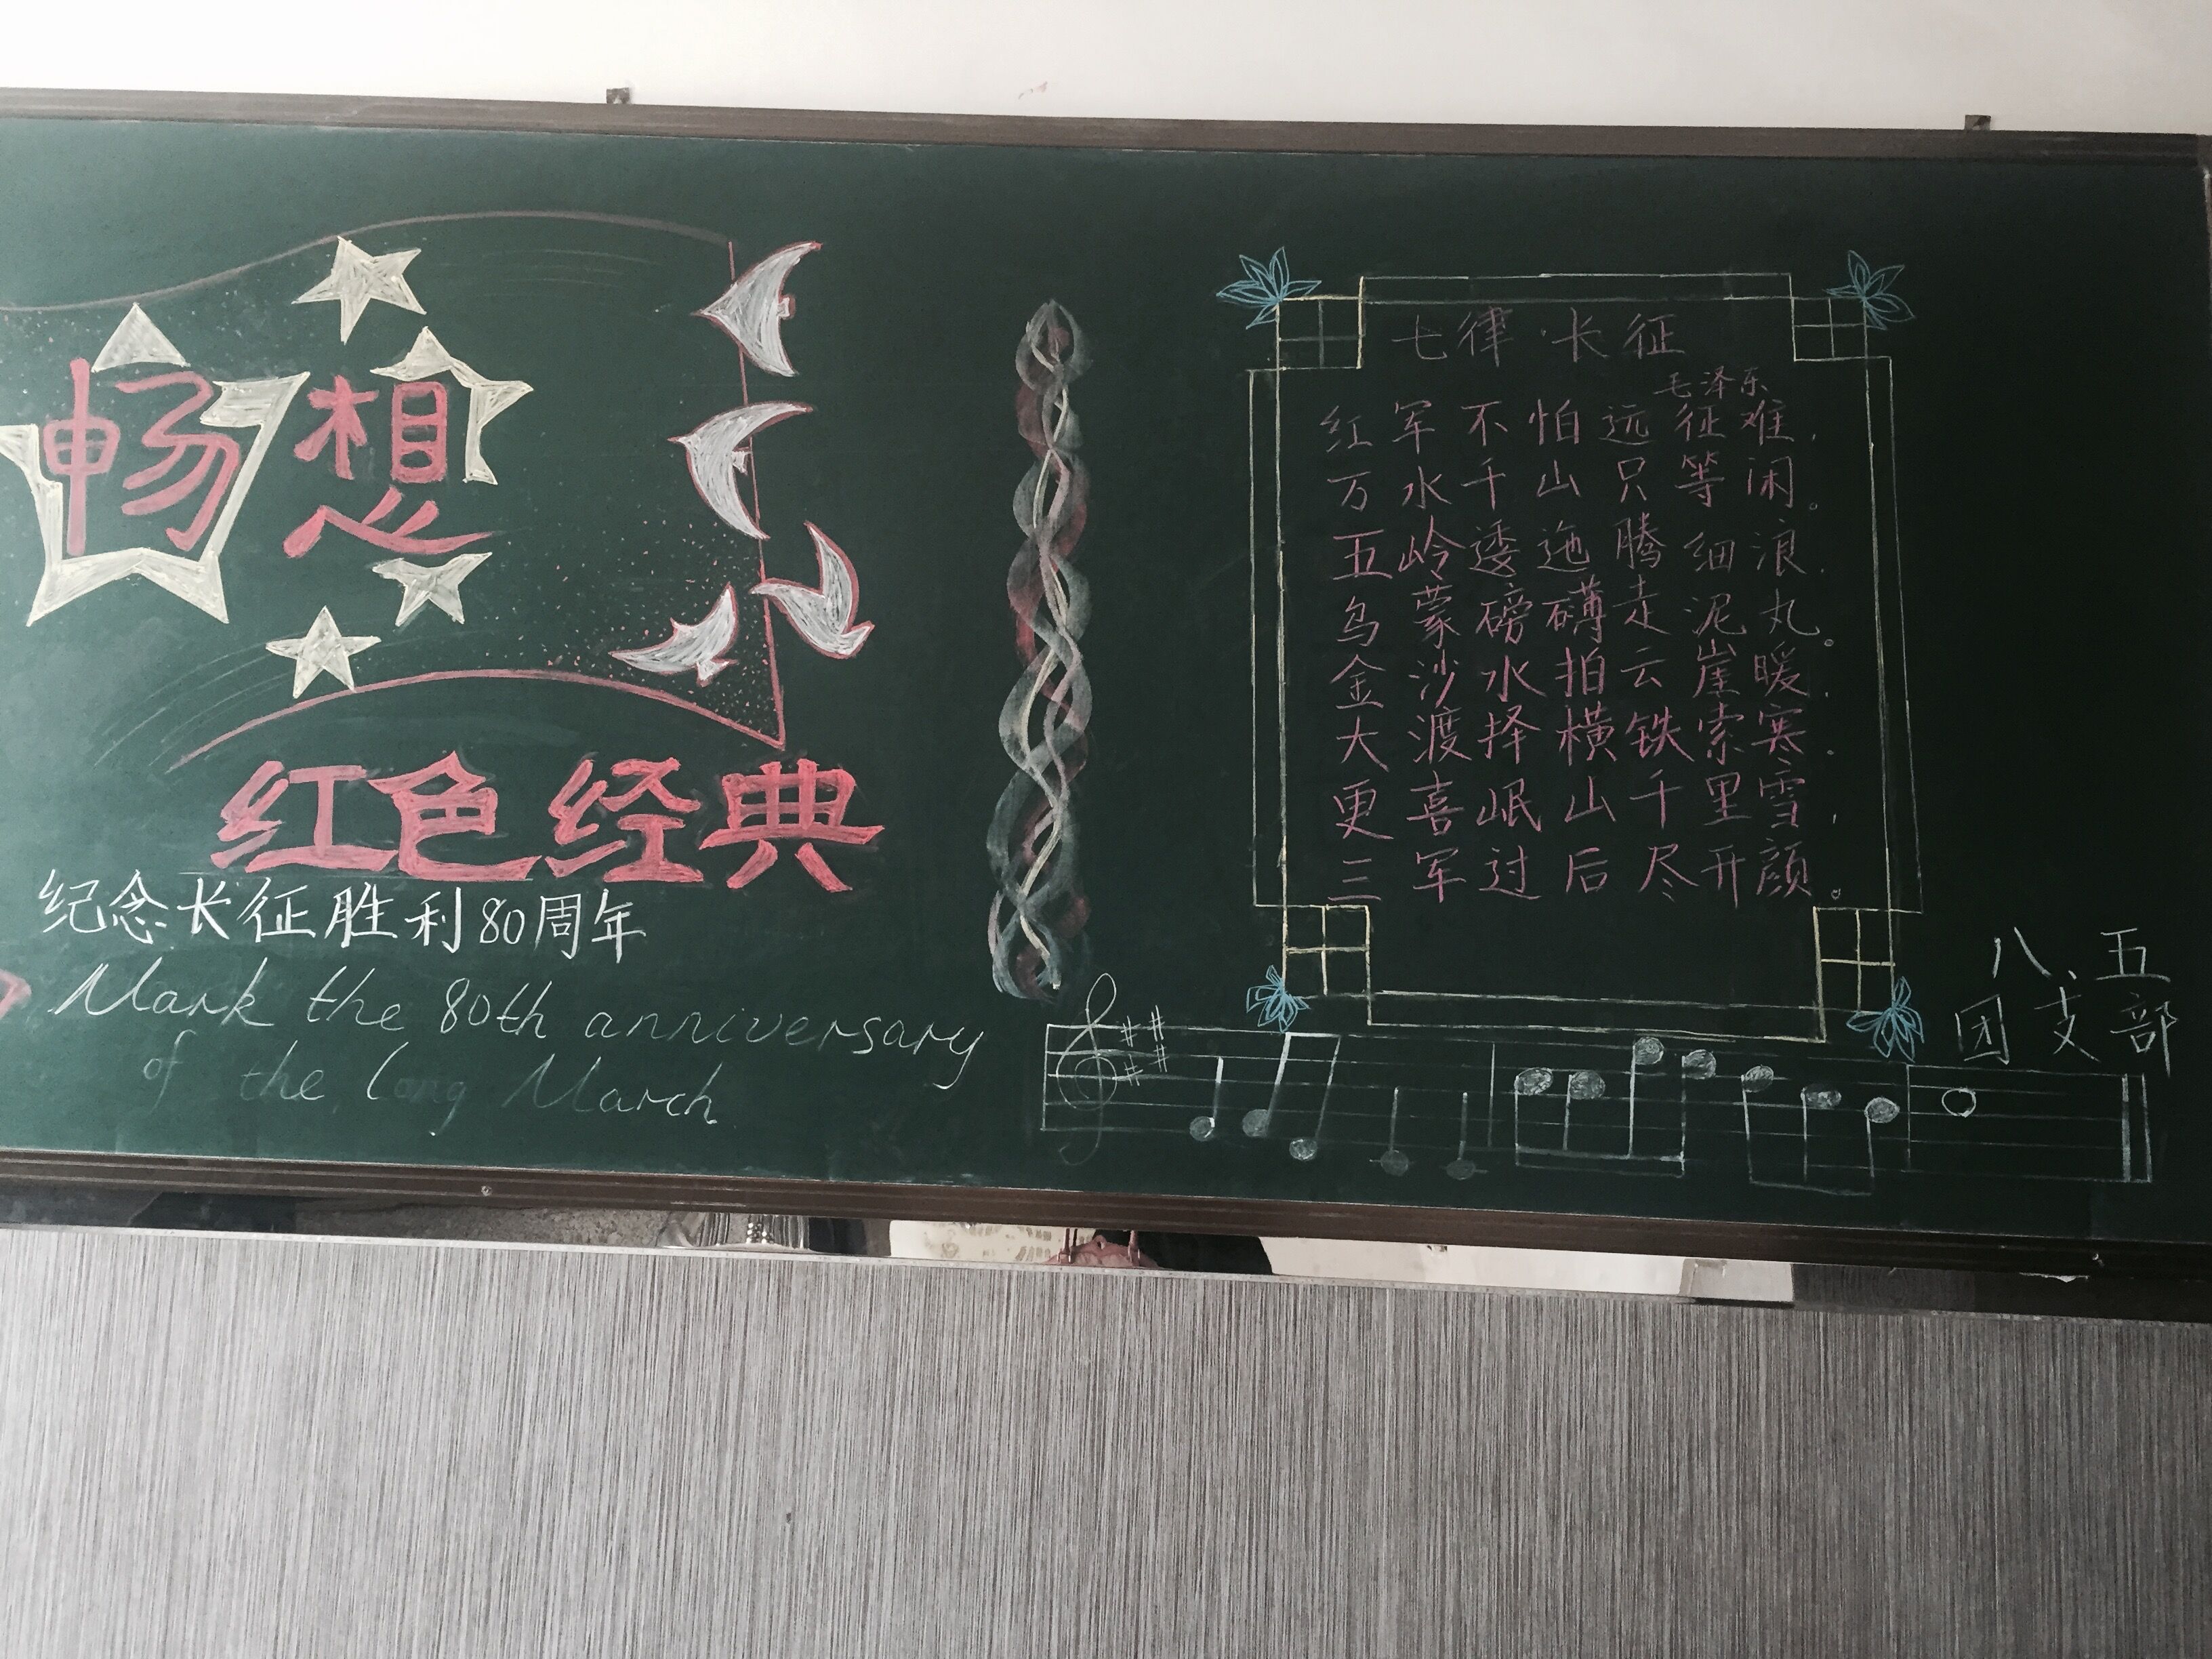 畅想
红色经典
纪念长征胜利80周年
Mark the 80th anniversary
of the Long March
七律·长征
毛泽东
红军不怕远征难,
万水千山只等闲。
五岭逶迤腾细浪,
乌蒙磅礴走泥丸。
金沙水拍云崖暖,
大渡择横铁索寒.
更喜岷山千里雪,
三军过后尽开颜。
八、五
团支部